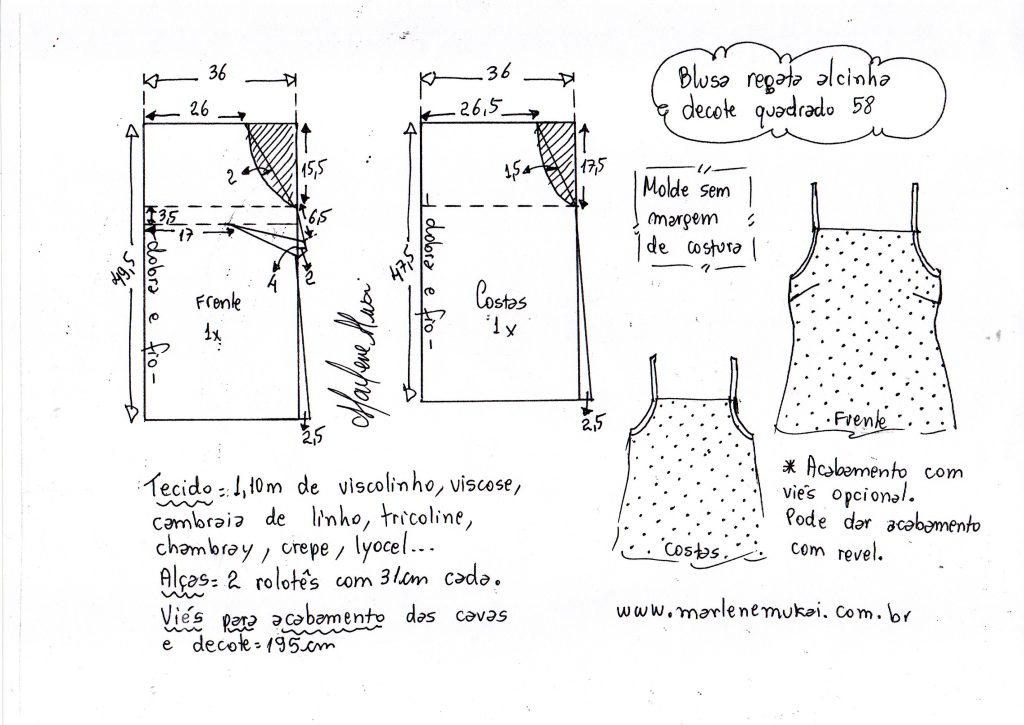 Blusa regata alcinha
e decote quadrado 58
Molde sem
margem
de costura
36
26
49,5
2
15,5
3,5
17
6,5
4
2
dobra e fio
Frente
1x
2,5
Marlene Mukai
36
26,5
47,5
1,5
17,5
dobra e fio
Costas
1x
2,5
Frente
Costas
* Acabamento com
viés opcional.
Pode dar acabamento
com revel.
Tecido = 1,10m de viscolinho, viscose,
cambraia de linho, tricoline,
chambray, crepe, lyocel...
Alças = 2 rolotês com 31cm cada.
Viés para acabamento das cavas
e decote = 195cm
www.marlenemukai.com.br